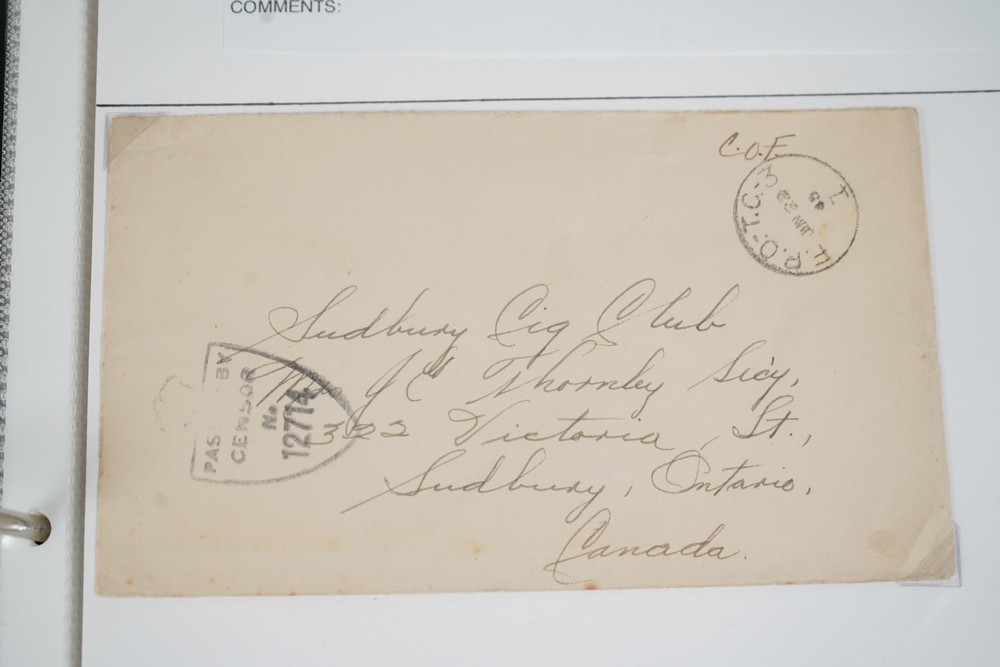 COMMENTS:
C.O.F.
F.P.O.-T.C.-3
1
JUN 22
45
Sudbury Cig Club
Mrs J C Thornley Sicy,
322 Victoria, St.,
Sudbury, Ontario,
Canada.
PAS BY
CENSOR
No
12714